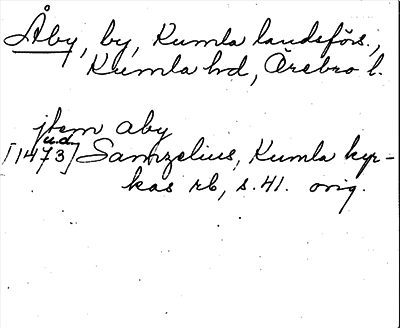 Åby, by, Kumla landsförs.,
Kumla hd, Örebro l.
jtem aby
u.d.
[1473] Samzelius, Kumla kyr-
kas rb, s. 41. orig.